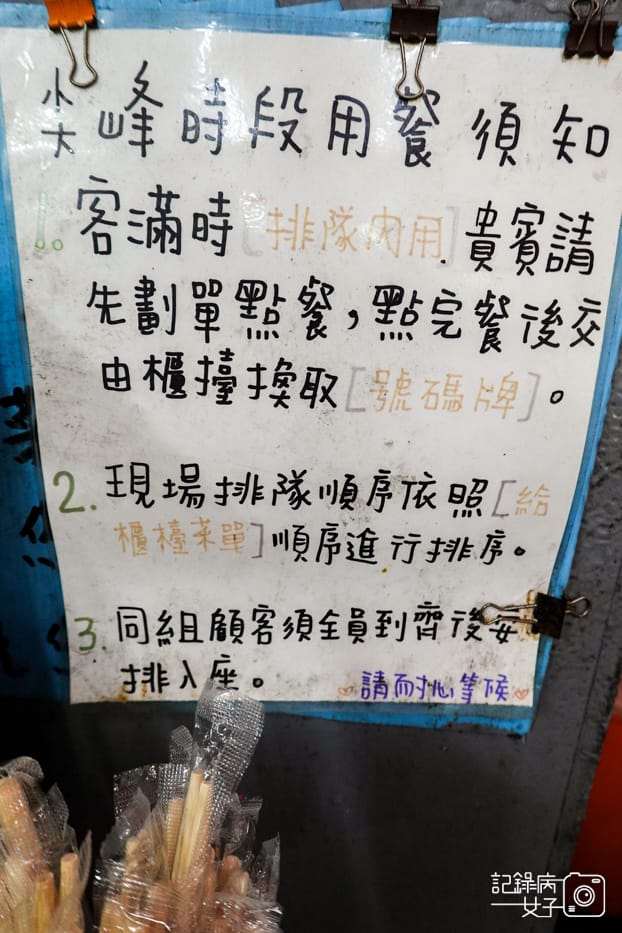 尖峰時段用餐須知
1. 客滿時[排隊內用]貴賓請
先劃單點餐，點完餐後交
由櫃擡換取[號碼牌]。
2. 現場排隊順序依照[給
櫃檯菜單]順序進行排序。
3. 同組顧客須全員到齊後安
排入座。
請耐心等候
記錄病
女子